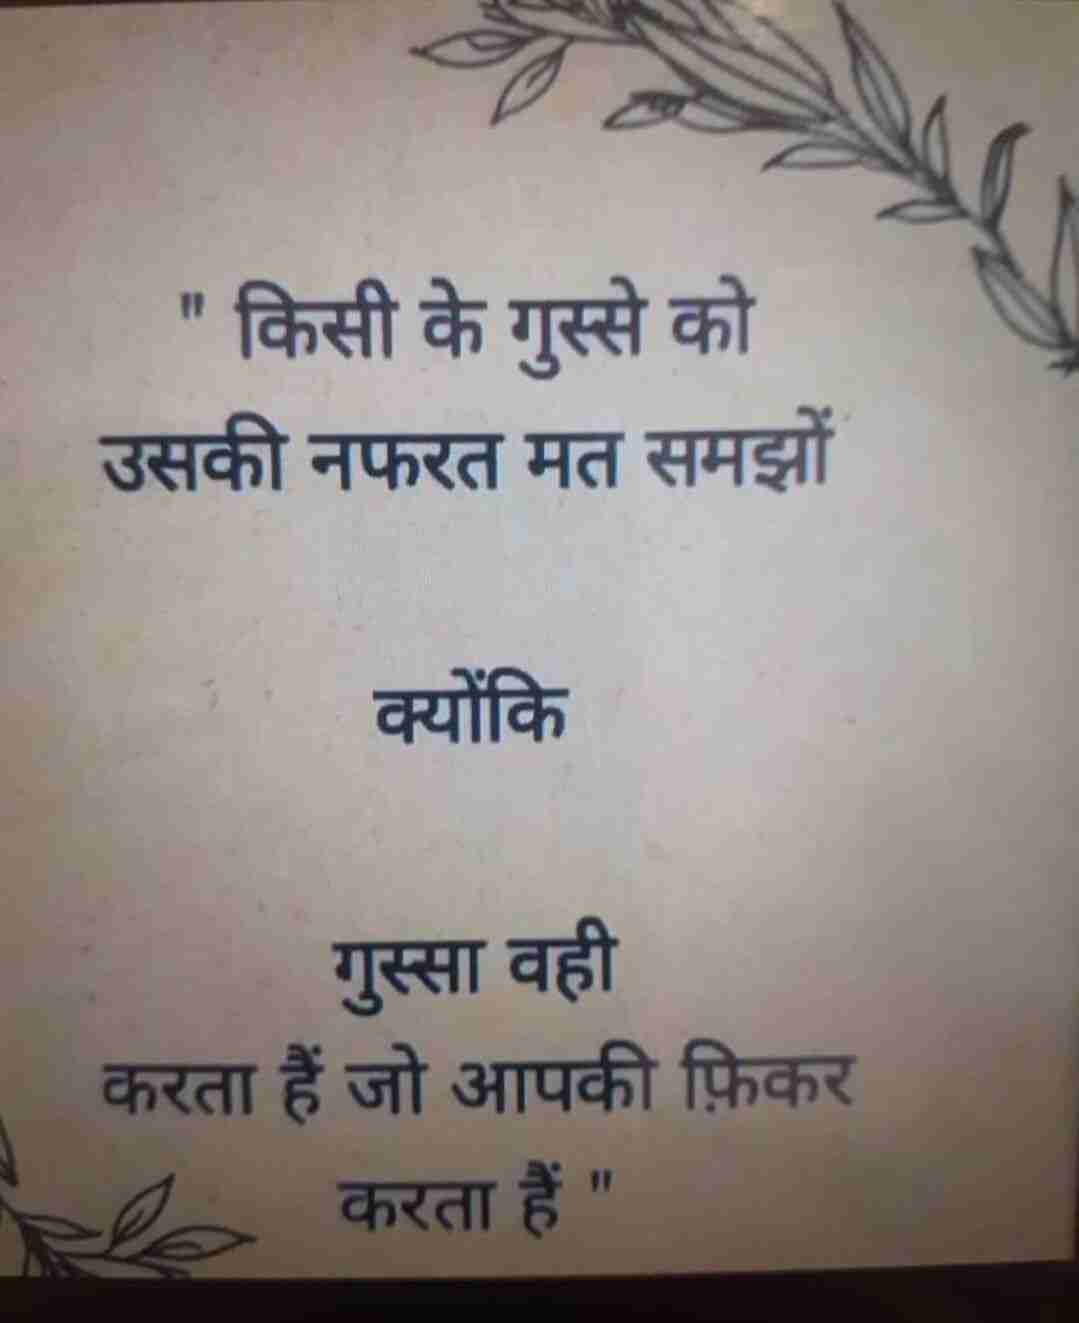 " किसी के गुस्से को
उसकी नफरत मत समझों
क्योंकि
गुस्सा वही
करता हैं जो आपकी फ़िकर
करता हैं "